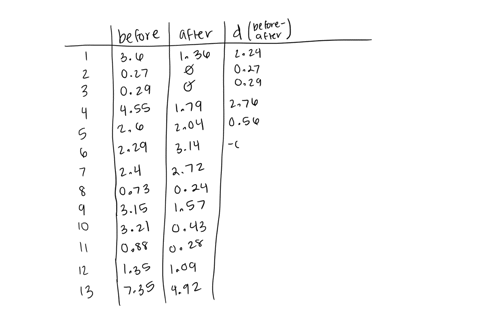 before after d (before-after)
1 3.6 1.36 2.24
2 0.27 0 0.27
3 0.29 0 0.29
4 4.55 1.79 2.76
5 2.6 2.04 0.56
6 2.29 3.14 -(
7 2.4 2.72
8 0.73 0.24
9 3.15 1.57
10 3.21 0.43
11 0.88 0.28
12 1.35 1.09
13 7.35 4.92